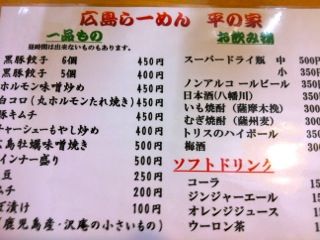 広島らーめん 平の家
一品もの
昼時間は出来ないものもあります。
黒豚餃子 6個 450円
黒豚餃子 5個 400円
ホルモン味噌炒め 450円
白コロ(丸ホルモンたれ焼き) 450円
豚キムチ 450円
チャーシューもやし炒め 400円
広島牡蠣味噌焼き 500円
インナー盛り 500円
豆 250円
ムチ 200円
ぼ漬け 100円
(鹿児島産・沢庵の小さいもの)
お飲み物
スーパードライ瓶 中 500円
小 350円
ノンアルコールビール 350
日本酒(八幡川) 350
いも焼酎 (薩摩木挽) 350
むぎ焼酎 (薩州麦) 350
トリスのハイボール 350
梅酒 300円
ソフトドリンク
コーラ
ジンジャーエール
オレンジジュース
ウーロン茶